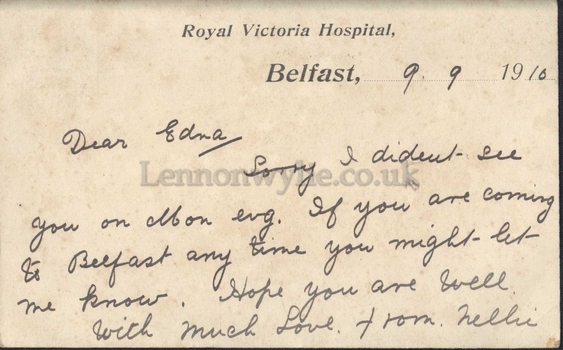 Royal Victoria Hospital,
Belfast, 9. 9 1910
Dear Edna
Sorry I dident see
Lennonwylie.co.uk
you on Mon evg. If you are coming
to Belfast any time you might let
me know. Hope you are Well.
With Much Love. From. Nellie